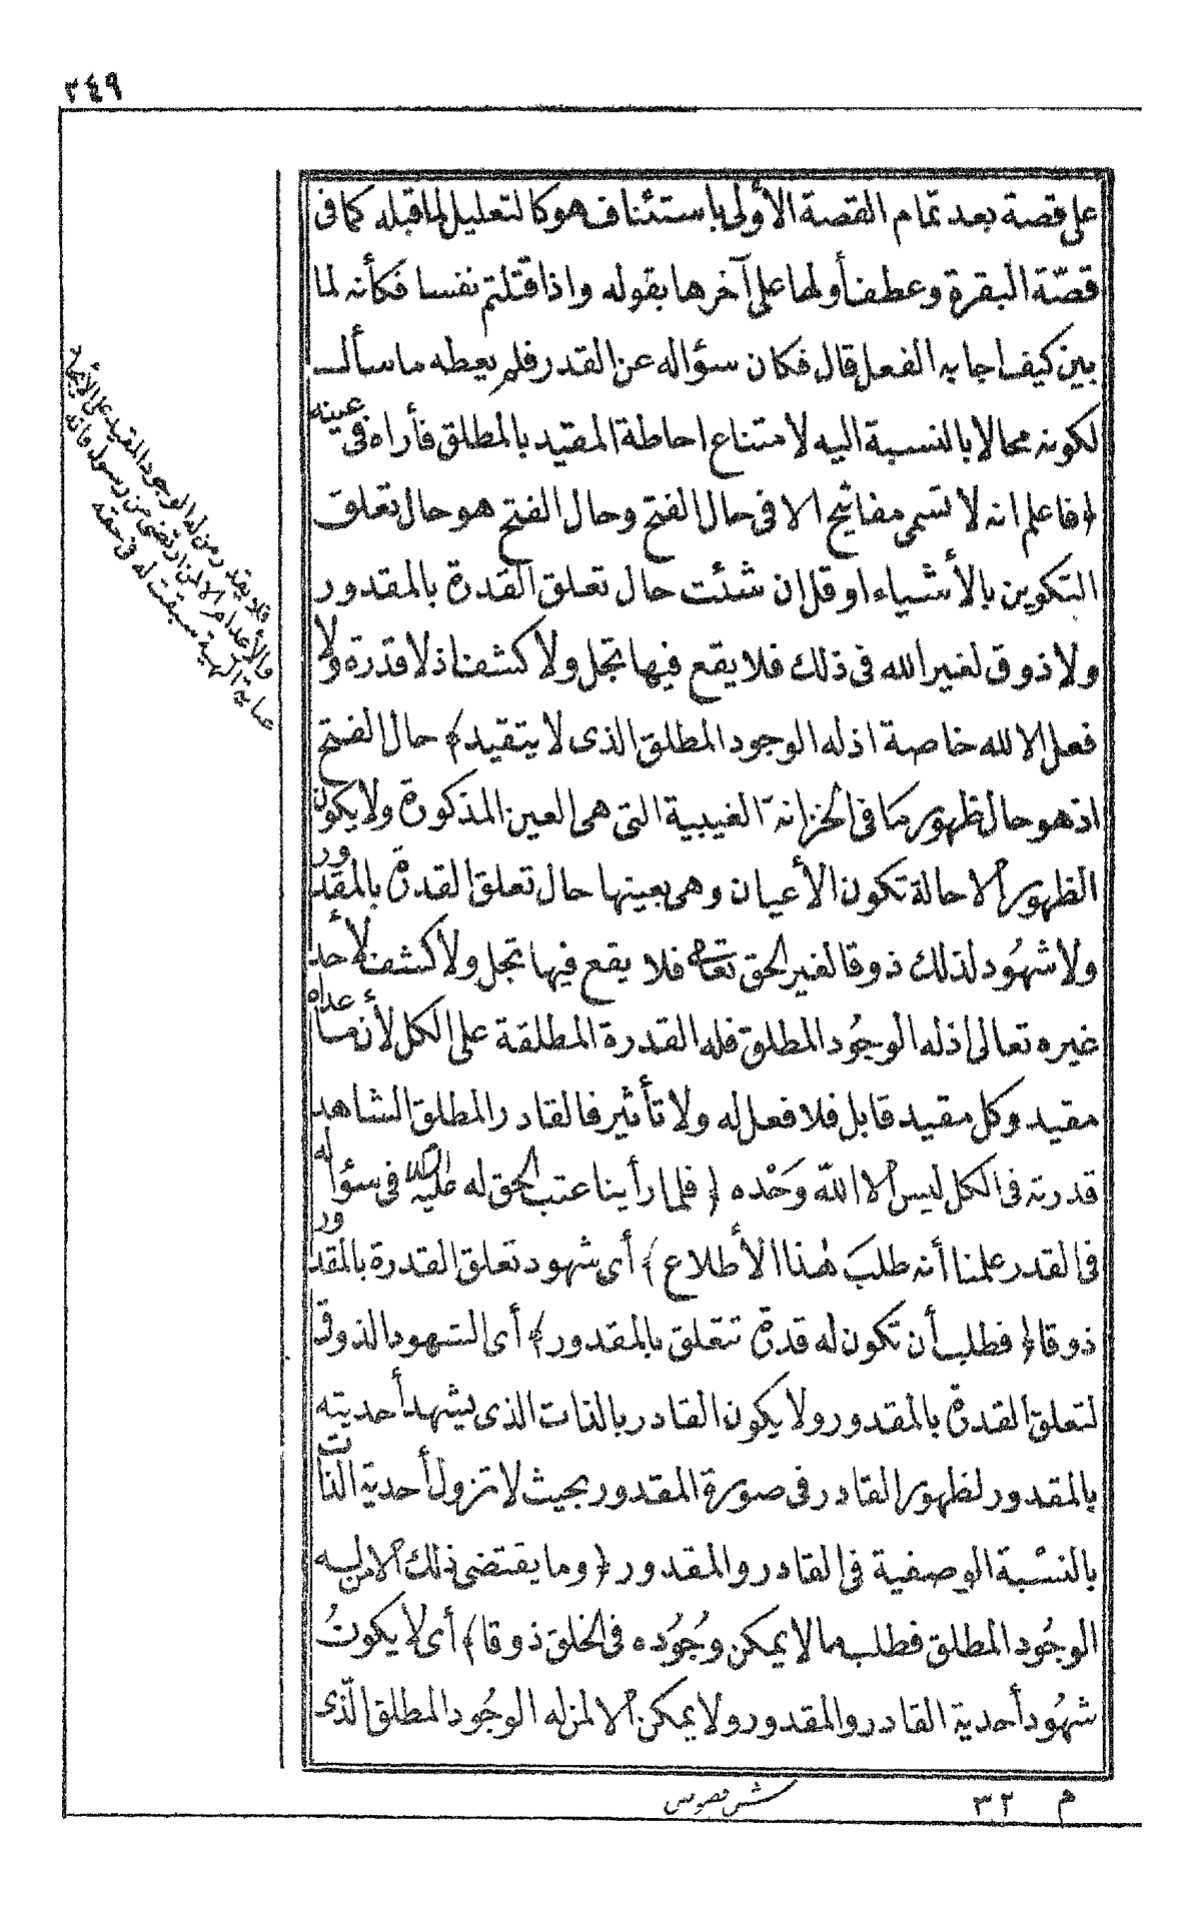 ٢٤٩
على قصة بعد تمام القصة الأولى باستئناف هو كالتعليل لما قبله كما فى
قصّة البقرة وعطف أولها على آخرها بقوله واذ قتلتم نفسا فكأنه لما
بين كيف اجابه الفعل قال فكان سؤاله عن القدر فلم يعطه ما سأل
لكونه محالا بالنسبة اليه لامتناع احاطة المقيد بالمطلق فأراه فى عينه
﴿فاعلم انه لا تسمى مفاتيح الا فى حال الفتح وحال الفتح هو حال تعلق
التكوين بالأشياء او قل ان شئت حال تعلق القدرة بالمقدور
ولا ذوق لغير الله فى ذلك فلا يقع فيها تجل ولا كشف اذ لا قدرة ولا
فعل الا لله خاصة اذ له الوجود المطلق الذى لا يتقيد﴾ حال الفتح
اذ هو حال ظهور ما فى الخزانة الغيبية التى هى العين المذكورة ولا يكون
الظهور الا حالة تكون الأعيان وهى بعينها حال تعلق القدرة بالمقدور
ولا شهُود لذلك ذوقا لغير الحق تعالى فلا يقع فيها تجل ولا كشف لأحد
غيره تعالى اذ له الوجُود المطلق فله القدرة المطلقة على الكل لأن ما عداه
مقيد وكل مقيد قابل فلا فعل له ولا تأثير فالقادر المطلق الشاهد
قدرته فى الكل ليس الا اللّه وَحْده ﴿فلما رأينا عتب الحق له عليه السلام فى سؤاله
فى القدر علمنا أنه طلبَ هٰذا الأطلاع﴾ أى شهود تعلق القدرة بالمقدور
ذوقا ﴿فطلب أن تكون له قدرة تتعلق بالمقدور﴾ أى الشهود الذوقى
لتعلق القدرة بالمقدور ولا يكون القادر بالذات الذى يشهد أحديته
بالمقدور لظهور القادر فى صورة المقدور بحيث لا تزول أحدية الذات
بالنسْبة الوصفية فى القادر والمقدور ﴿وما يقتضى ذلك الا من له
الوجُود المطلق فطلب ما لا يمكن وجُوده فى الخلق ذوقا﴾ أى لا يكونُ
شهُود أحدية القادر والمقدور ولا يمكن الا لمن له الوجُود المطلق الّذى
فلا يقدر من له الوجود المقيد على الأيجاد
والأعدام الا لمن ارتضى من رسول فانه
عناية الهية سبقت له فى حقه
م ٣٢ شرح فصوص